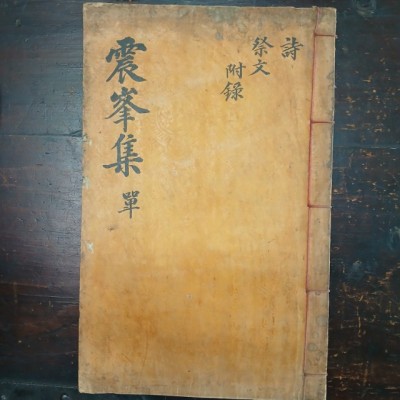 詩
祭文
附錄
震峯集 單